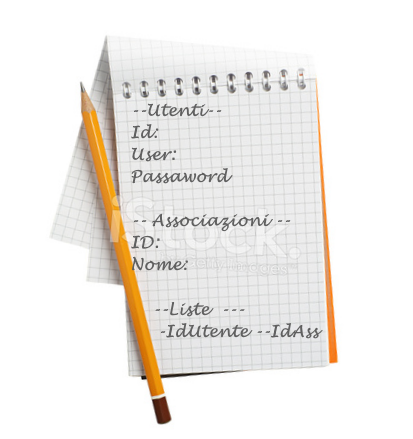 --Utenti--
Id:
User:
Passaword
-- Associazioni --
ID:
Nome:
--Liste ---
-IdUtente --IdAss
iStock.